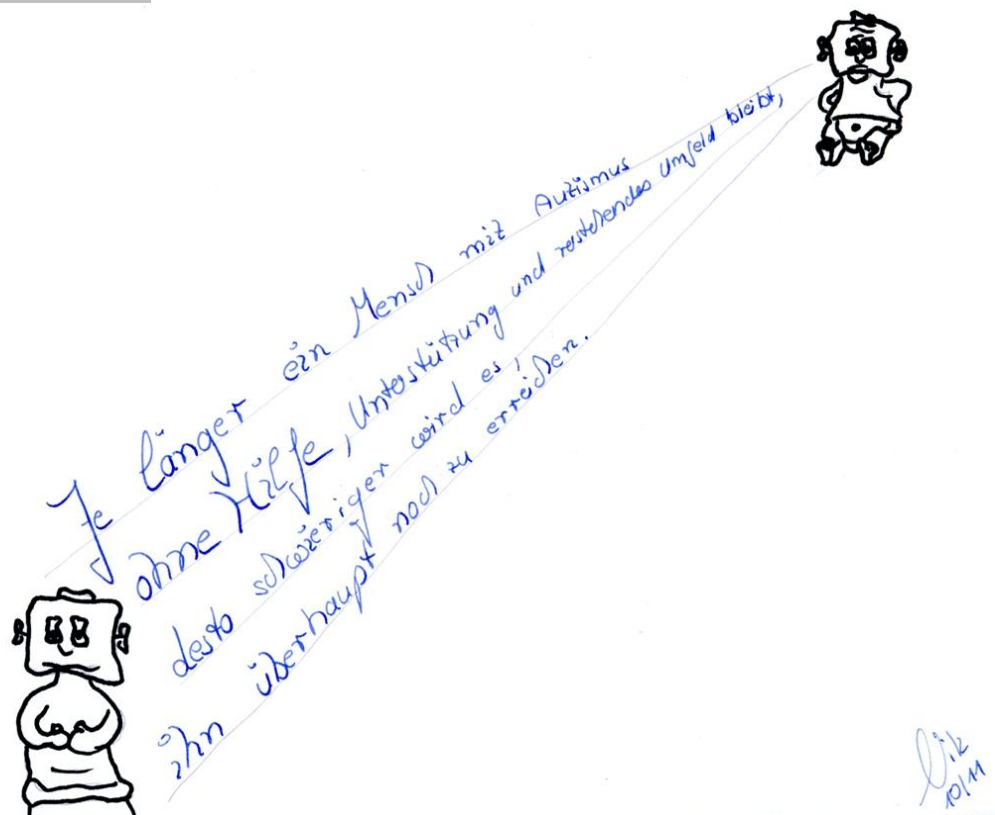 Je länger ein Mensch mit Autismus
ohne Hilfe, Unterstützung und verstehendes Umfeld bleibt,
desto schwieriger wird es,
ihn überhaupt noch zu erreichen.
10/11